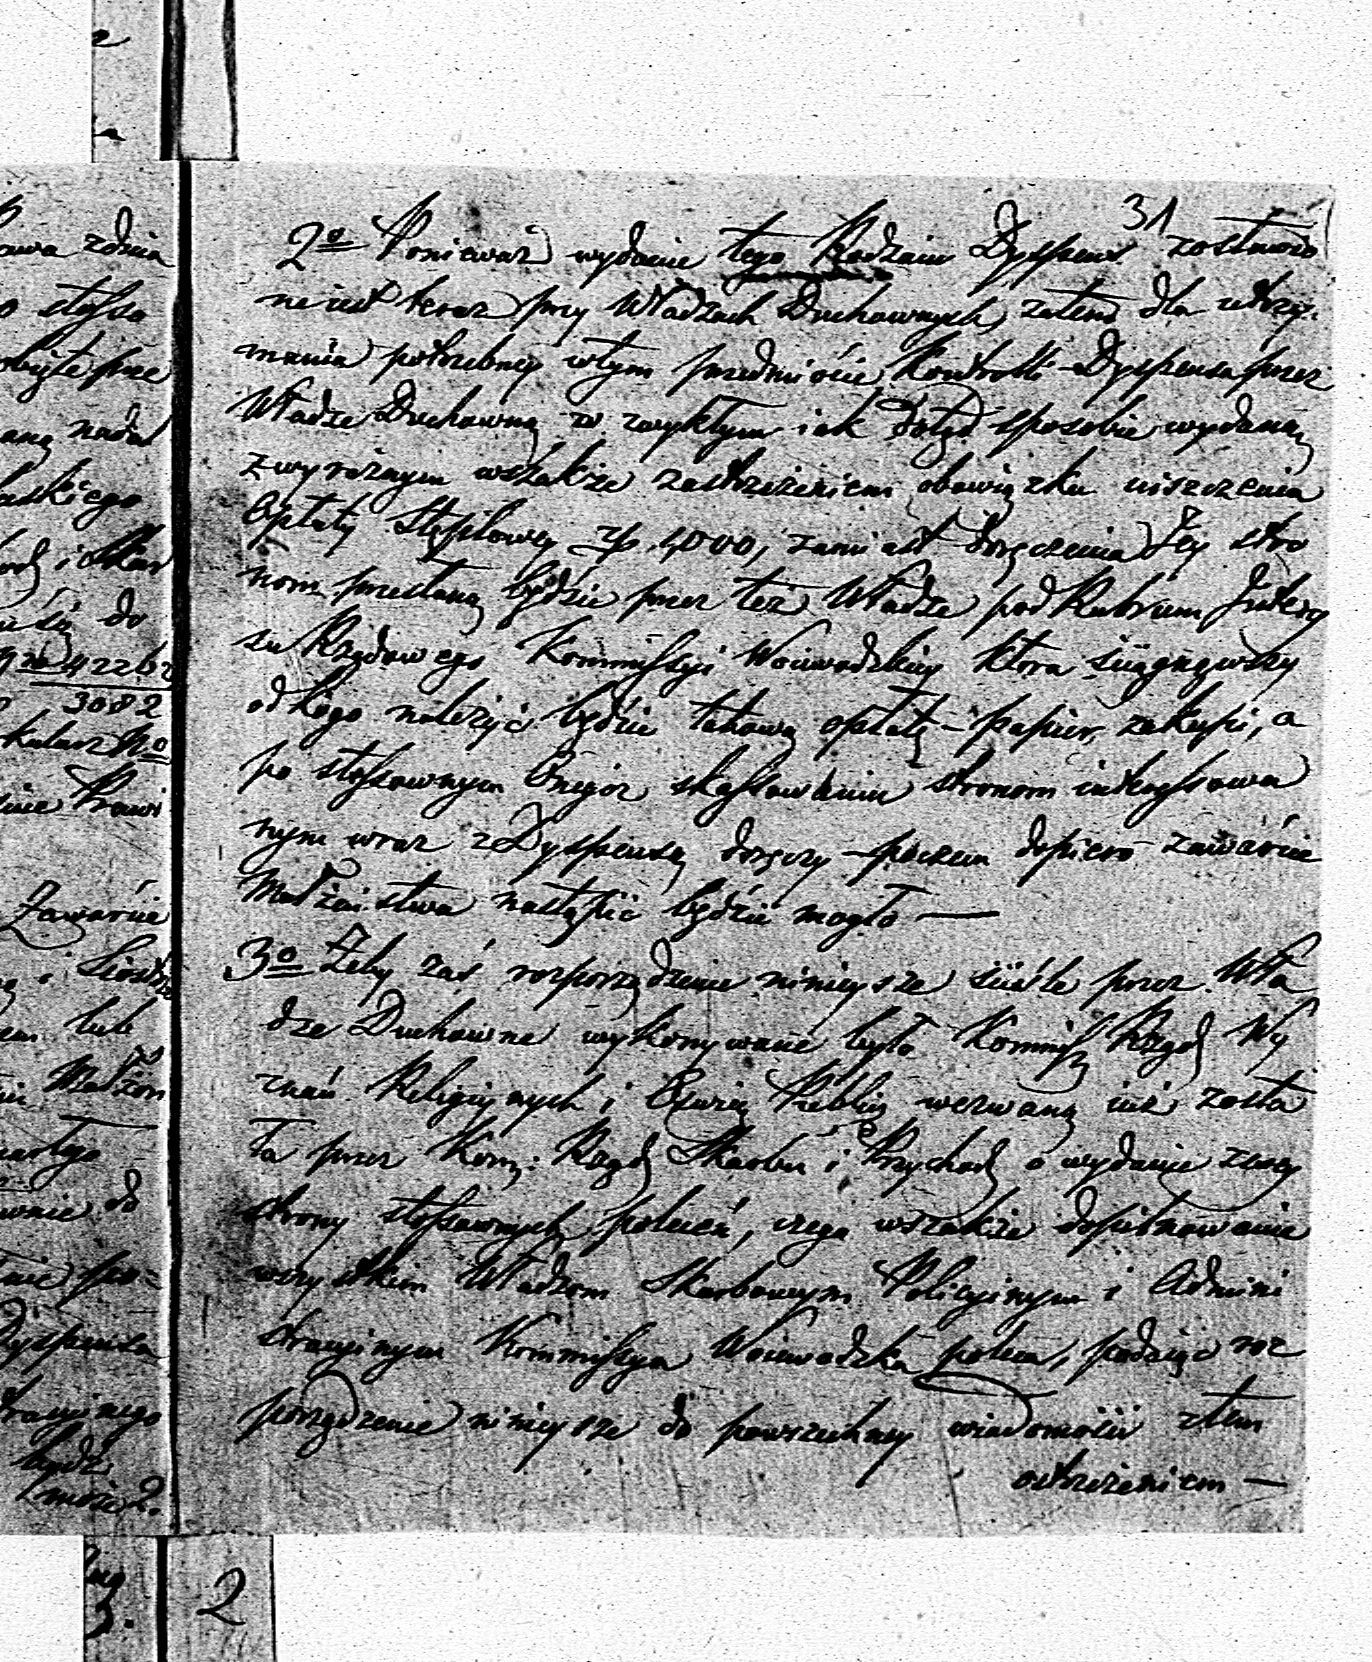 31
2o Ponieważ wydanie tego Rodzaiu Dyspens zostawio
ne iest teraz przy Władzach Duchownych, zatem dla utrzy-
mania potrzebney wtym przedmiocie Kontrolli – Dyspensa przez
Władze Duchowną w zwykłym iak dotąd sposobie wydana,
z wyraźnym wszakże zastrzeżeniem obowiązku uiszczenia
Opłaty Stęplowey zp. 1000, zamiast doręczenia Jey stro
nom przesłaną będzie przez też Władze pod Rubrum Interes
su Rządowego Kommissyi Woiewodzkiey która ściągnąwszy
od kogo należyć będzie takową opłatę – papier zakupi, a
po stossownym Onegoż skassowaniu stronom interessowa
nym wraz z Dyspensą doręczy – poczem dopiero zawarcie
Małżeństwa nastąpić będzie mogło —
3o Żeby zaś rozporządzenie ninieysze ściśle przez Wła
dze Duchowne wykonywane było Kommiss Rząd Wy
znań Religiynych i Oświe Public wezwaną iuż zosta
ła przez Kom: Rząd Skarbu i Przychod o wydanie zswey
strony stossownych poleceń, czego wszakże dopilnowanie
wszystkim Władzom Skarbowym Policyinym i Admini
stracyinym Kommissya Woiewodzka poleca, podaiąc roz
porządzenie ninieysze do powszechney wiadomości ztem
ostrzeżeniem —
zdnia
stosso
nadal
do
3082
No
Zawarcie
i
lub
od
Dyspensa
bydź
2